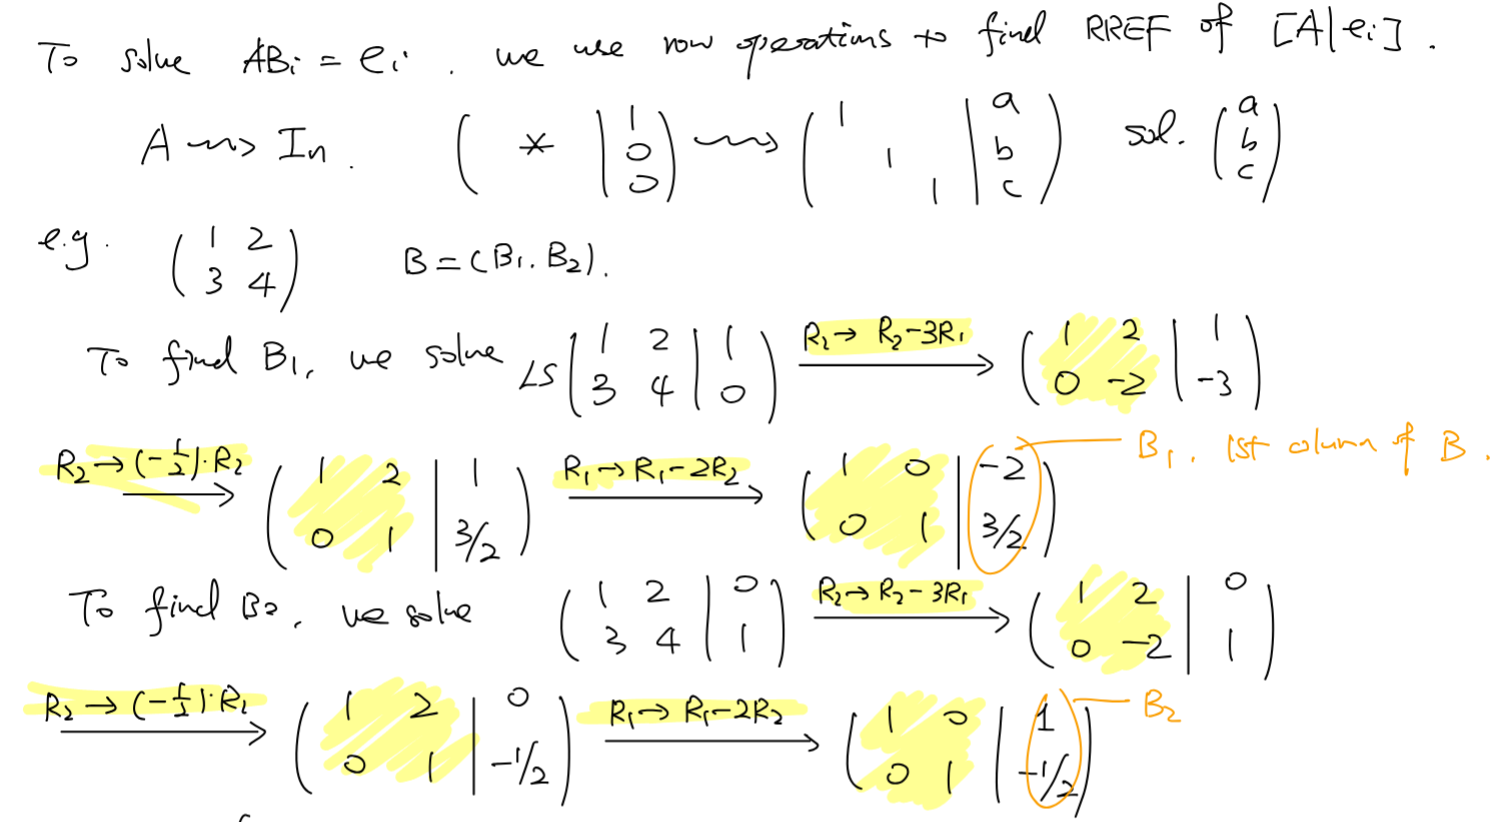 To solve ABi = ei . we use row operations to find RREF of [A|ei] .
A ⇝ In . ( * | 1 0 0 ) ⇝ ( 1 1 1 | a b c ) sol. ( a b c )
e.g. ( 1 2 3 4 ) B = (B1. B2).
To find B1, we solve LS ( 1 2 | 1 3 4 | 0 ) R2 → R2-3R1 ( 1 2 | 1 0 -2 | -3 )
R2 → (-1/2)·R2 ( 1 2 | 1 0 1 | 3/2 ) R1 → R1-2R2 ( 1 0 | -2 0 1 | 3/2 ) B1, 1st olumn of B .
To find B2, we solve ( 1 2 | 0 3 4 | 1 ) R2 → R2-3R1 ( 1 2 | 0 0 -2 | 1 )
R2 → (-1/2)·R2 ( 1 2 | 0 0 1 | -1/2 ) R1 → R1-2R2 ( 1 0 | 1 0 1 | -1/2 ) B2